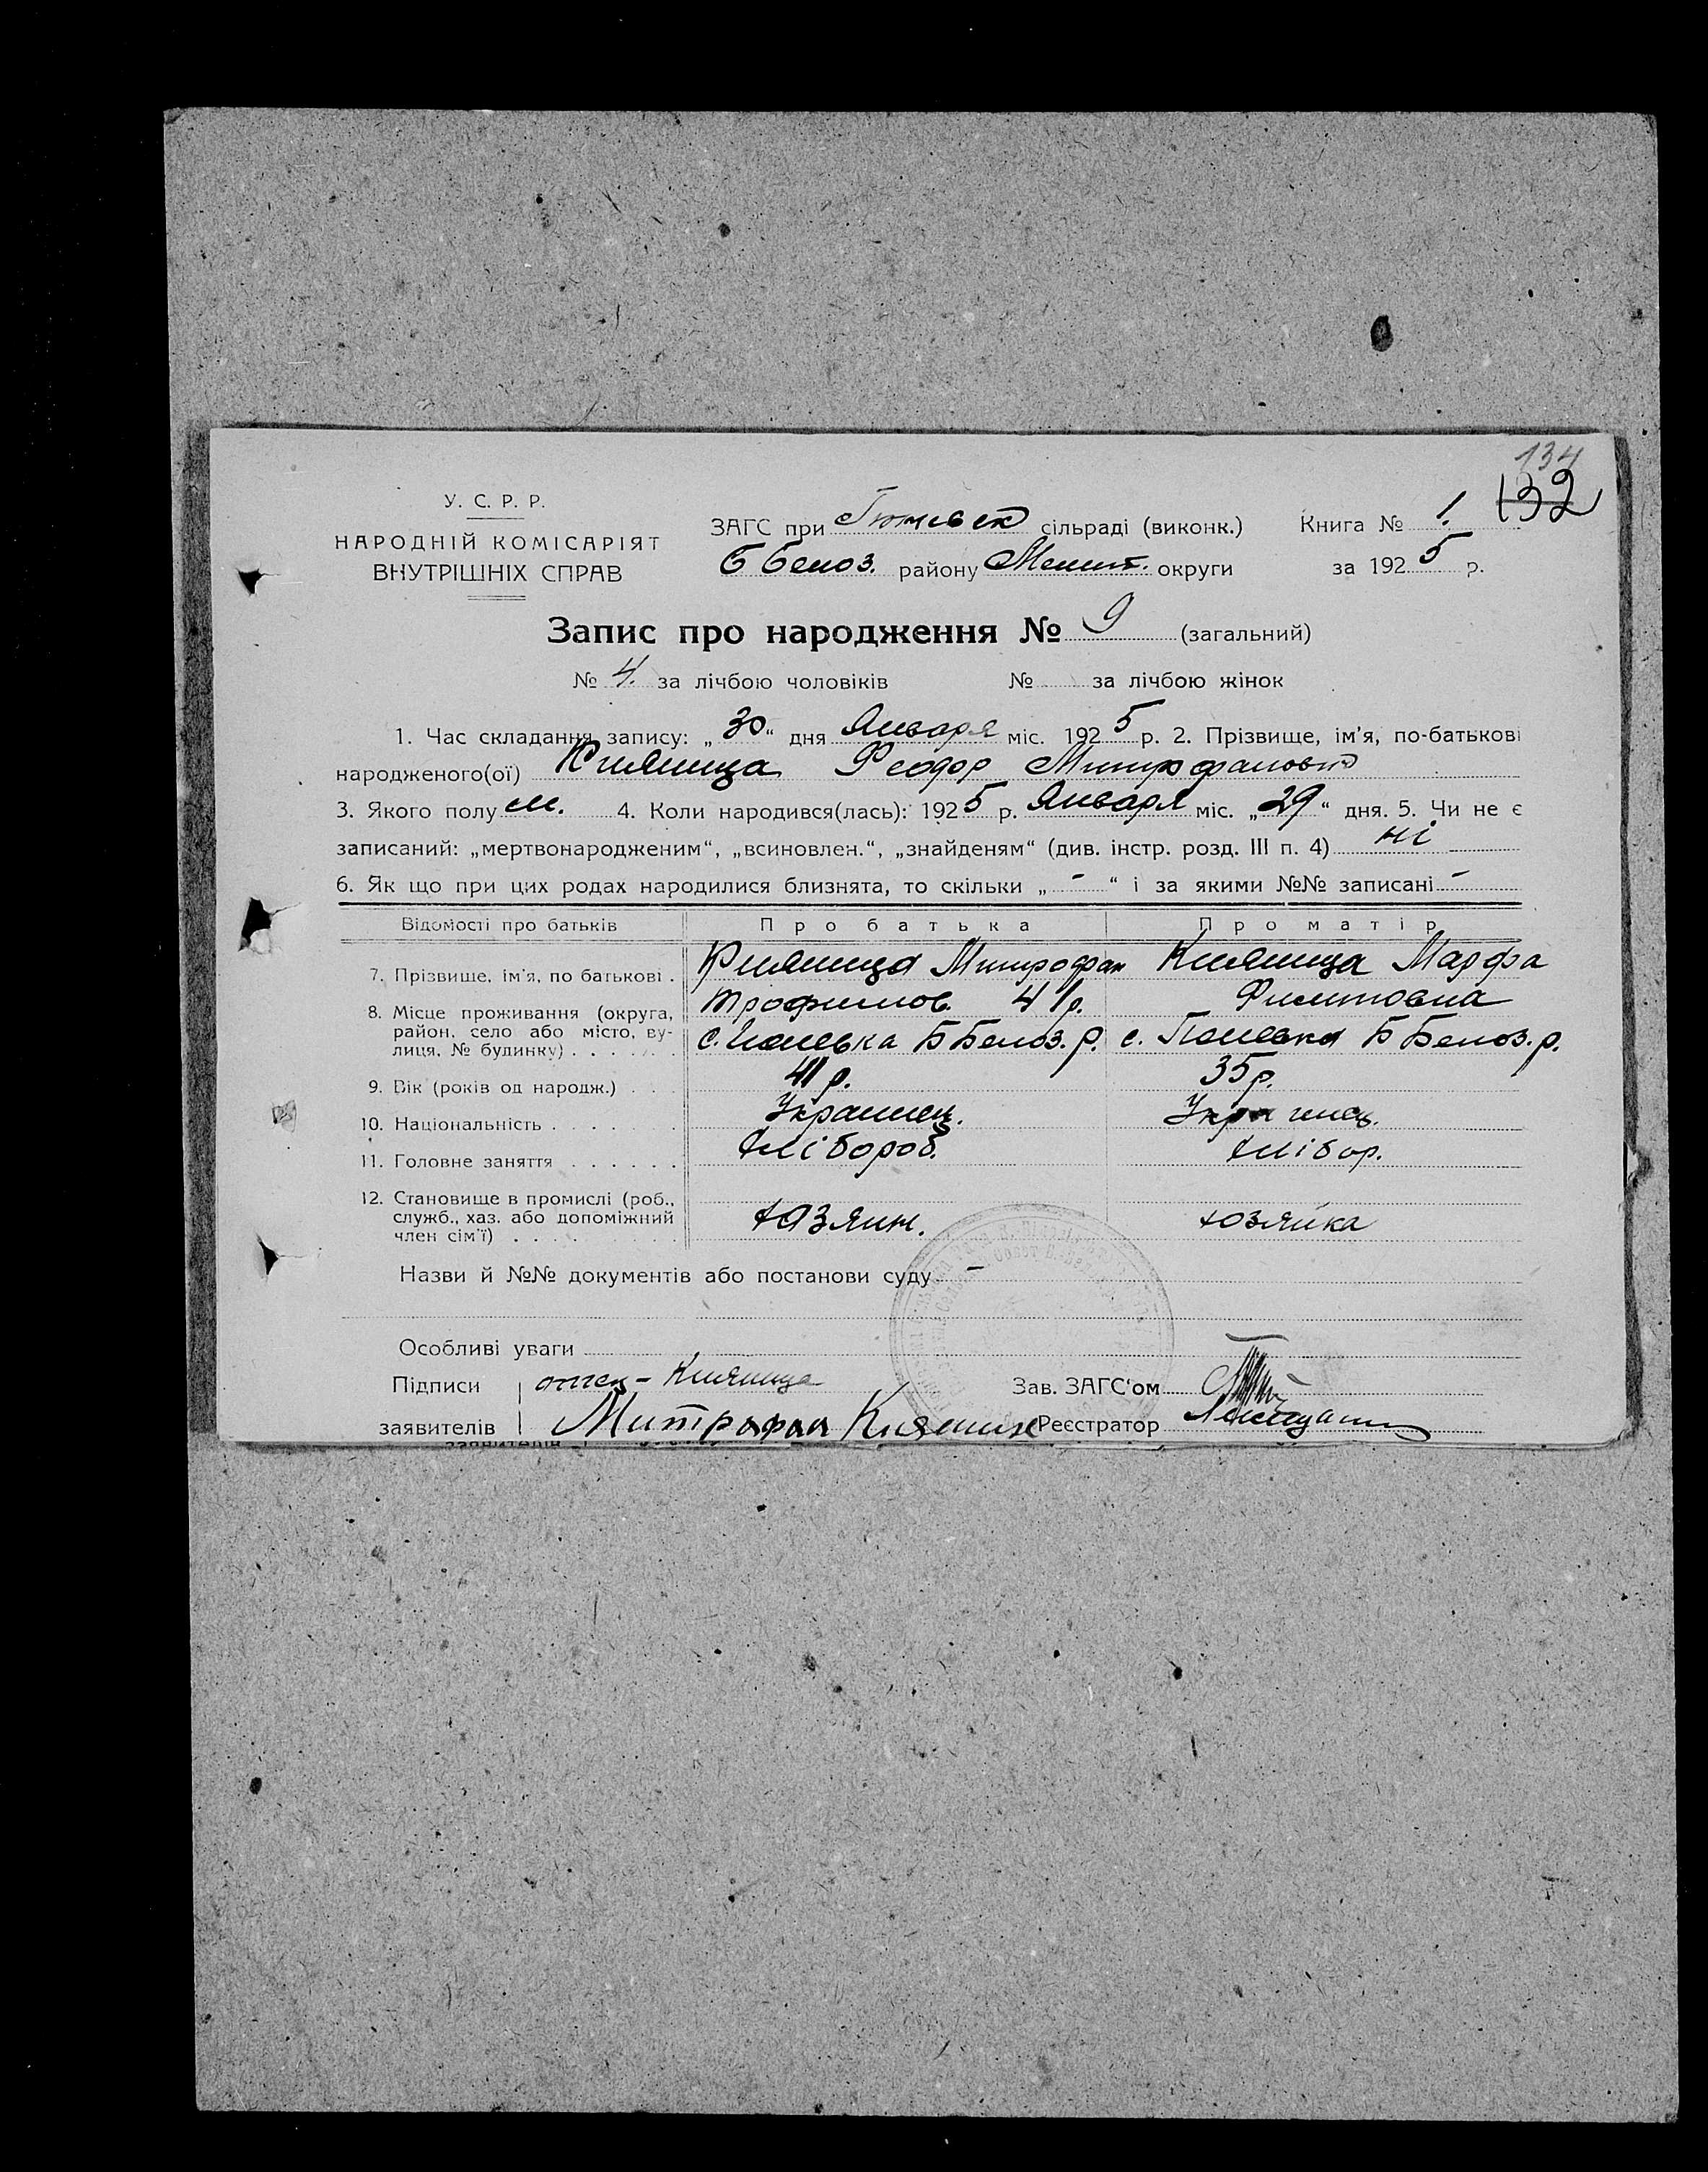 134
132
У. С. Р. Р.
НАРОДНІЙ КОМІСАРІЯТ
ВНУТРІШНІХ СПРАВ
ЗАГС при сільраді (виконк.) Книга № 1.
Б Белоз. району Мелит. округи за 1925 р.
Запис про народження № 9 (загальний)
№ 4. за лічбою чоловіків № за лічбою жінок
1. Час складання запису: „30“ дня Января міс. 1925 р. 2. Прізвище, ім'я, по-батькові
народженого(ої) Княница Феодор Митрофанов
3. Якого полу м. 4. Коли народився(лась): 1925 р. Января міс. „29“ дня. 5. Чи не є
записаний: „мертвонародженим“, „всиновлен.“, „знайденям“ (див. інстр. розд. III п. 4) ні
6. Як що при цих родах народилися близнята, то скільки „ - “ і за якими №№ записані -
Відомості про батьків Про батька Про матір
7. Прізвище, ім'я, по батькові . Княница Митрофан Княница Марфа
Трофимов. 41 р. Филитовна
8. Місце проживання (округа, район, село або місто, вулиця, № будинку) . . . . . . с. Б Белоз. р. с. Б Белоз. р.
9. Вік (років од народж.) . . 41 р. 35 р.
10. Національність . . . . . . . Украинец. Украинец.
11. Головне заняття . . . . . . Хлібороб. Хлібор.
12. Становище в промислі (роб., служб., хаз. або допоміжний член сім'ї) . . . . хозяин. хозяйка
Назви й №№ документів або постанови суду -
Особливі уваги
Підписи отец - Княница Зав. ЗАГС'ом
заявителів Митрофан Реєстратор